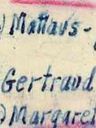 ) Mattäus-
Gertraud
) Margaret